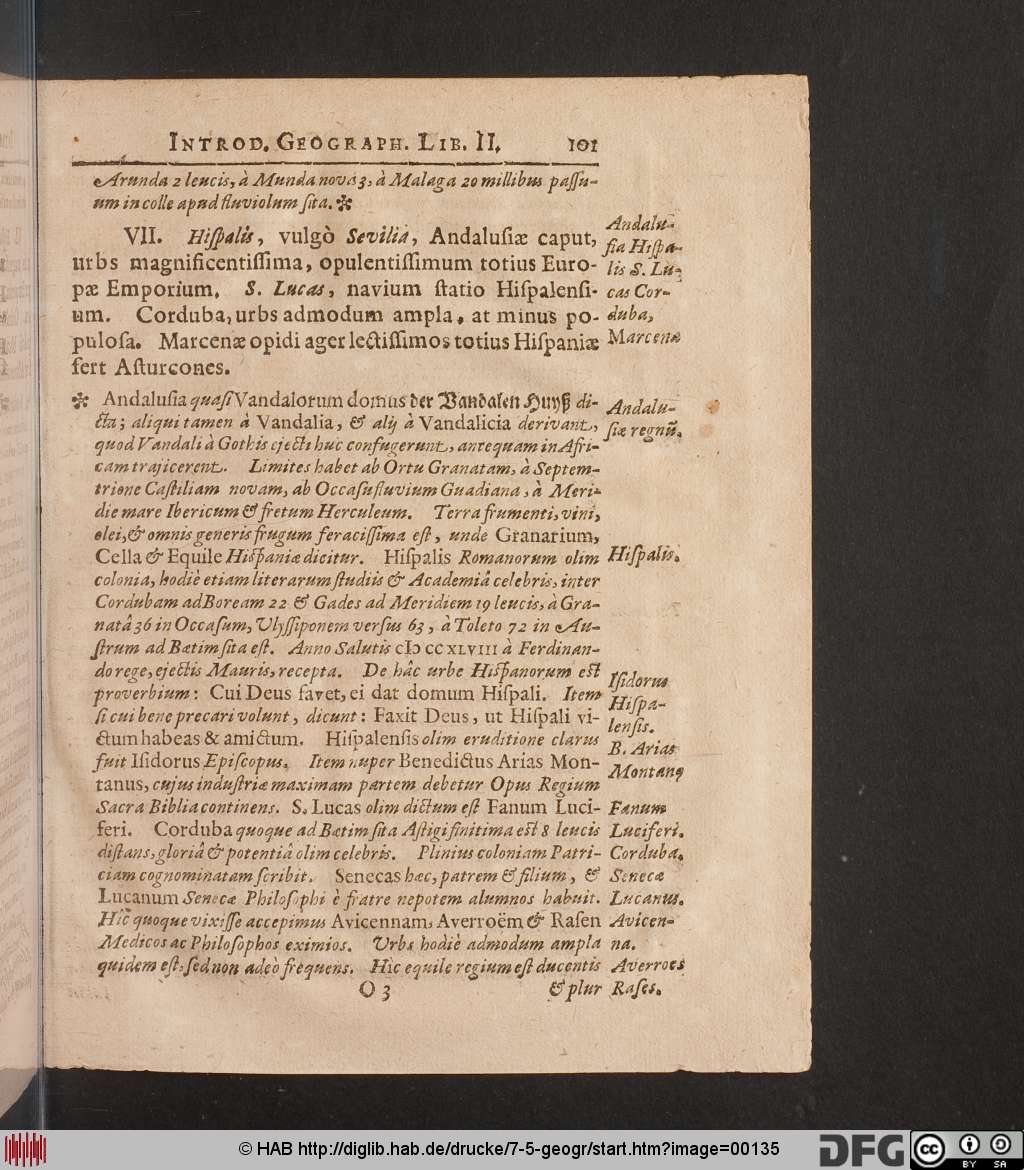 INTROD. GEOGRAPH. LIB. II. 101
Arunda 2 leucis, à Munda nova 3, à Malaga 20 millibus passu-
um in colle apud fluviolum sita. ✻
VII. Hispalis, vulgò Sevilia, Andalusiæ caput,
urbs magnificentissima, opulentissimum totius Euro-
pæ Emporium. S. Lucas, navium statio Hispalensi-
um. Corduba, urbs admodum ampla, at minus po-
pulosa. Marcenæ opidi ager lectissimos totius Hispaniæ
fert Asturcones.
Andalu-
sia Hispa-
lis S. Lu-
cas Cor-
duba,
Marcenæ
✻ Andalusia quasi Vandalorum domus der Vandalen Huyß di-
cta; aliqui tamen à Vandalia, & alij à Vandalicia derivant,
quod Vandali à Gothis ejecti huc confugerunt, antequam in Afri-
cam trajicerent. Limites habet ab Ortu Granatam, à Septem-
trione Castiliam novam, ab Occasu fluvium Guadiana, à Meri-
die mare Ibericum & fretum Herculeum. Terra frumenti, vini,
olei, & omnis generis frugum feracissima est, unde Granarium,
Cella & Equile Hispaniæ dicitur. Hispalis Romanorum olim
colonia, hodiè etiam literarum studiis & Academiâ celebris, inter
Cordubam ad Boream 22 & Gades ad Meridiem 19 leucis, à Gra-
natâ 36 in Occasum, Ulyssiponem versus 63, à Toleto 72 in Au-
strum ad Bætim sita est. Anno Salutis cIↄ ccxlviii à Ferdinan-
do rege, ejectis Mauris, recepta. De hâc urbe Hispanorum est
proverbium: Cui Deus favet, ei dat domum Hispali. Item
si cui bene precari volunt, dicunt: Faxit Deus, ut Hispali vi-
ctum habeas & amictum. Hispalensis olim eruditione clarus
fuit Isidorus Episcopus. Item nuper Benedictus Arias Mon-
tanus, cujus industriæ maximam partem debetur Opus Regium
Sacra Biblia continens. S. Lucas olim dictum est Fanum Luci-
feri. Corduba quoque ad Bætim sita Astigi finitima est 8 leucis
distans, gloriâ & potentiâ olim celebris. Plinius coloniam Patri-
ciam cognominatam scribit. Senecas hæc, patrem & filium, &
Lucanum Senecæ Philosophi è fratre nepotem alumnos habuit.
Hîc quoque vixisse accepimus Avicennam, Averroëm & Rasen
Medicos ac Philosophos eximios. Urbs hodiè admodum ampla
quidem est, sed non adeò frequens. Hic equile regium est ducentis
O 3 & plur
Andalu-
siæ regnũ.
Hispalis.
Isidorus
Hispa-
lensis.
B. Arias
Montanꝰ
Fanum
Luciferi.
Corduba.
Senecæ
Lucanus.
Avicen-
na.
Averroes
Rases.
© HAB http://diglib.hab.de/drucke/7-5-geogr/start.htm?image=00135
DFG
cc
BY SA